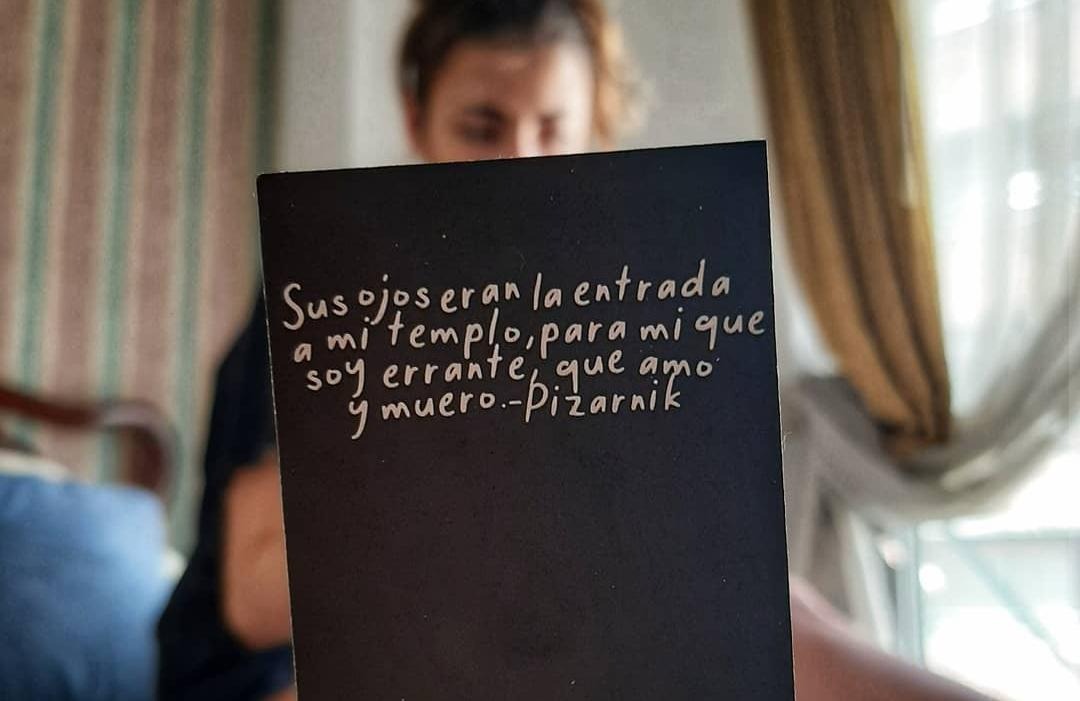 Sus ojos eran la entrada
a mi templo, para mi que
soy errante, que amo
y muero.-Pizarnik